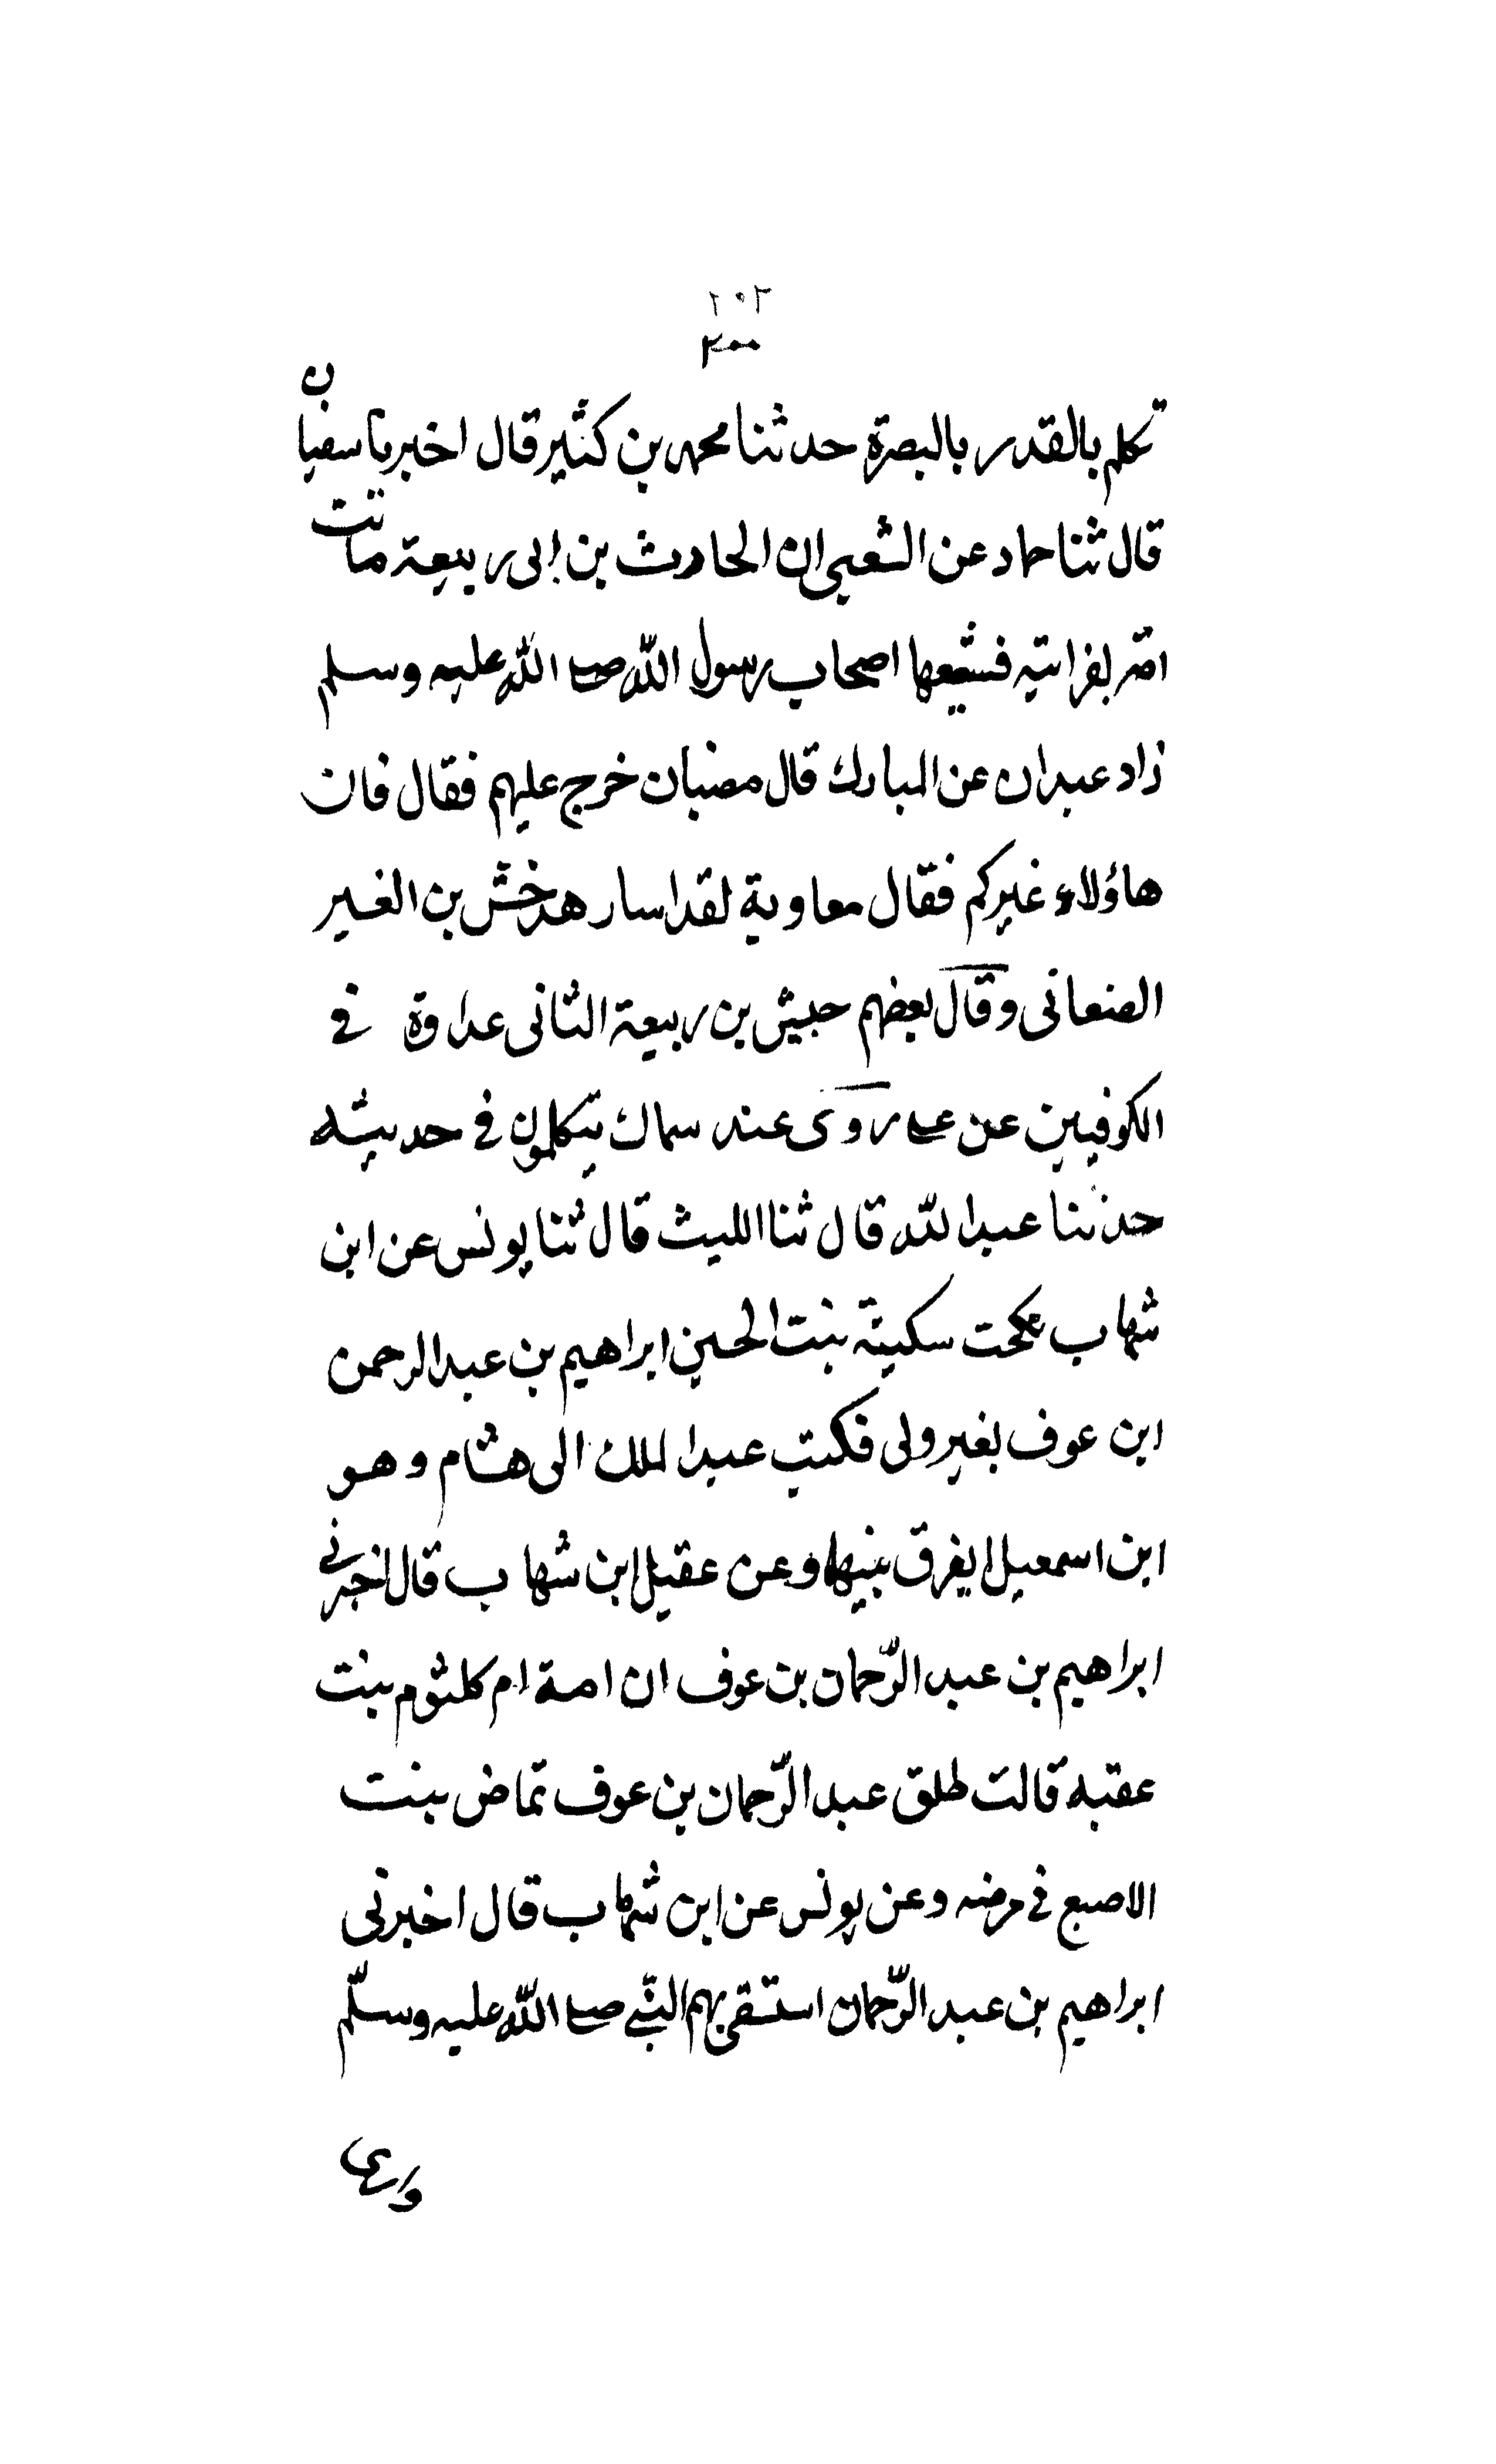 ٢٠٢
٢٠٠
تكلم بالقدر بالبصرة حدثنا محمد بن كثير قال اخبرنا سفيان
قال ثنا حماد عن الشعبى ان الحارث بن ابى ربيعة ماتت
امه نصرانية فشيعها اصحاب رسول الله صلى الله عليه وسلم
زاد عبدان عن المبارك قال خرج عليهم فقال فان
هاؤلاء غيركم فقال معاوية لقد اسار هد خش بن الغير
الصنعانى وقال بعضهم حبيش بن ربيعة الثانى عداوة فى
الكوفيين عن على روى عنه سماك يتكلمون فى حديثه
حدثنا عبد الله قال ثنا الليث قال ثنا يونس عن ابن
شهاب نكحت سكينة بنت الحسين ابراهيم بن عبد الرحمن
ابن عوف بغير ولى فكتب عبد الملك الى هشام وهو
ابن اسمعيل ايفرق بينهما وعن عقيل ابن شهاب قال اخبرنى
ابراهيم بن عبد الرّحمان بن عوف ان امة ام كلثوم بنت
عقبه قالت طلق عبد الرّحمان بن عوف تماض بنت
الاصبع فى مرضه وعن يونس عن ابن شهاب قال اخبرنى
ابراهيم بن عبد الرّحمان استسقى بهم النبّى صلى الله عليه وسلّم